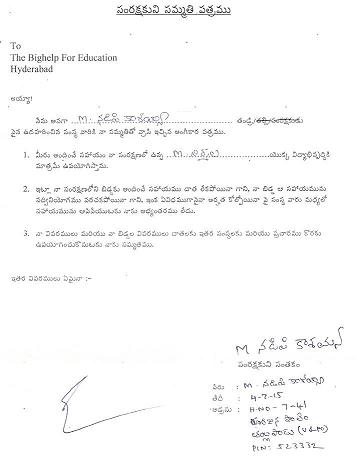 సంరక్షకుని సమ్మతి పత్రము
To
The Bighelp For Education
Hyderabad
అయ్యా!
నేను అనగా M. నడిపి కాశయ్య తండ్రి/తల్లి/సంరక్షకుడు
పైన ఉదహరించిన సంస్థ వారికి నా సమ్మతితో వ్రాసి ఇచ్చిన అంగీకార పత్రము.
1. మీరు అందించే సహాయం నా సంరక్షణలో ఉన్న M. యొక్క విద్యాభివృద్ధికి
మాత్రమే ఉపయోగిస్తాము.
2. ఇట్లా నా సంరక్షణలోని బిడ్డకు అందించే సహాయము దాత లేకపోయినా గాని, నా బిడ్డ ఆ సహాయమును
సద్వినియోగము పరచకపోయినా గాని, ఇంక ఏవిధముగానైనా అర్హత కోల్పోయినా పై సంస్థ వారు మధ్యలో
సహాయమును ఆపివేయుటకు నాకు అభ్యంతరము లేదు.
3. నా వివరములు మరియు నా బిడ్డల వివరములు దాతలకు ఇతర సంస్థలకు మరియు ప్రచారము కొరకు
ఉపయోగించుకొనుటకు నాకు సమ్మతము.
ఇతర వివరములు ఏమైనా :-
M నడిపి కాశయ్య
సంరక్షకుని సంతకం
పేరు : M. నడిపి కాశయ్య
తేది : 4-7-15
అడ్రసు : H.NO - 7-41
PIN: 523332